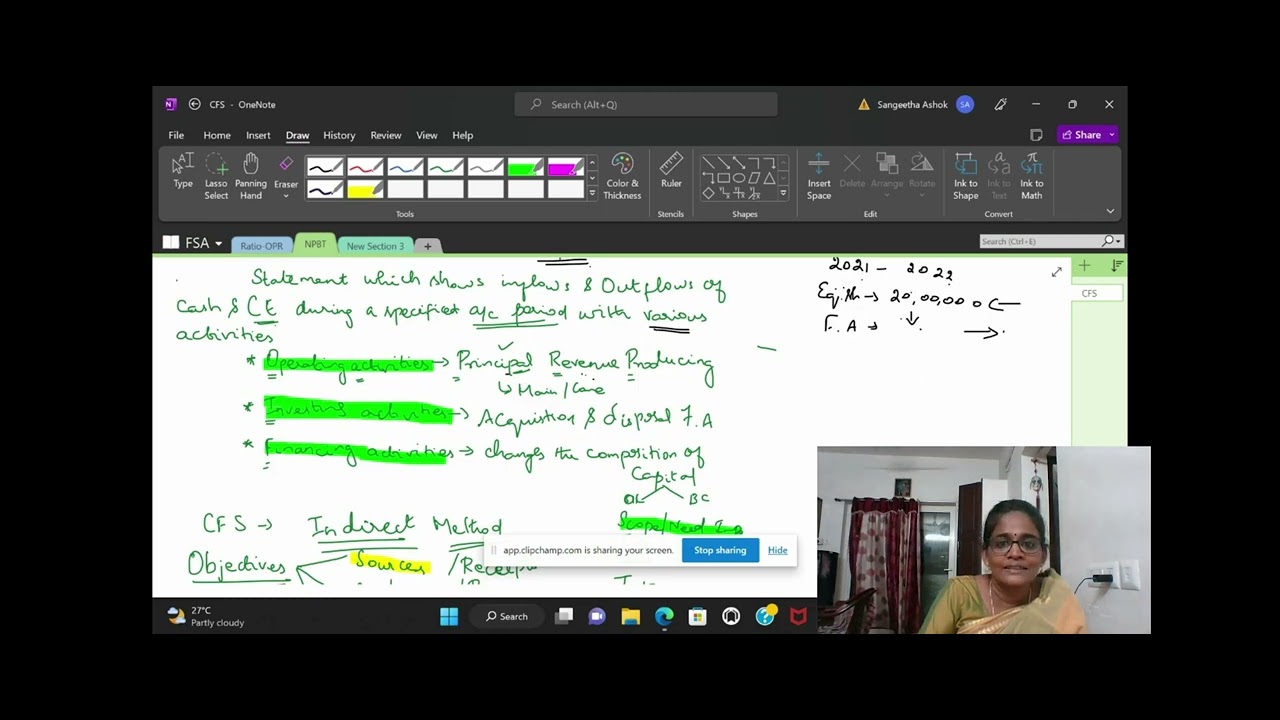 CFS - OneNote
Search (Alt+Q)
Sangeetha Ashok
SA
File Home Insert Draw History Review View Help
Share
Type
Lasso Select
Panning Hand
Eraser
Color & Thickness
Ruler
Insert Space
Delete
Arrange
Rotate
Ink to Shape
Ink to Text
Ink to Math
Tools
Stencils
Shapes
Edit
Convert
FSA
Ratio-OPR
NPBT
New Section 3
Search (Ctrl+E)
CFS
Statement which shows inflows & Outflows of
Cash & CE during a specified a/c period with various
activities
* Operating activities → Principal Revenue Producing
↳ Main/Core
* Investing activities → Acquistion & disposal F.A
* Financing activities → changes the composition of
Capital
BC
CFS → Indirect Method
Scope/Need
Objectives
Sources
2021 - 2022
→ 20,00,000
F.A →
app.clipchamp.com is sharing your screen.
Stop sharing
Hide
27°C
Partly cloudy
Search